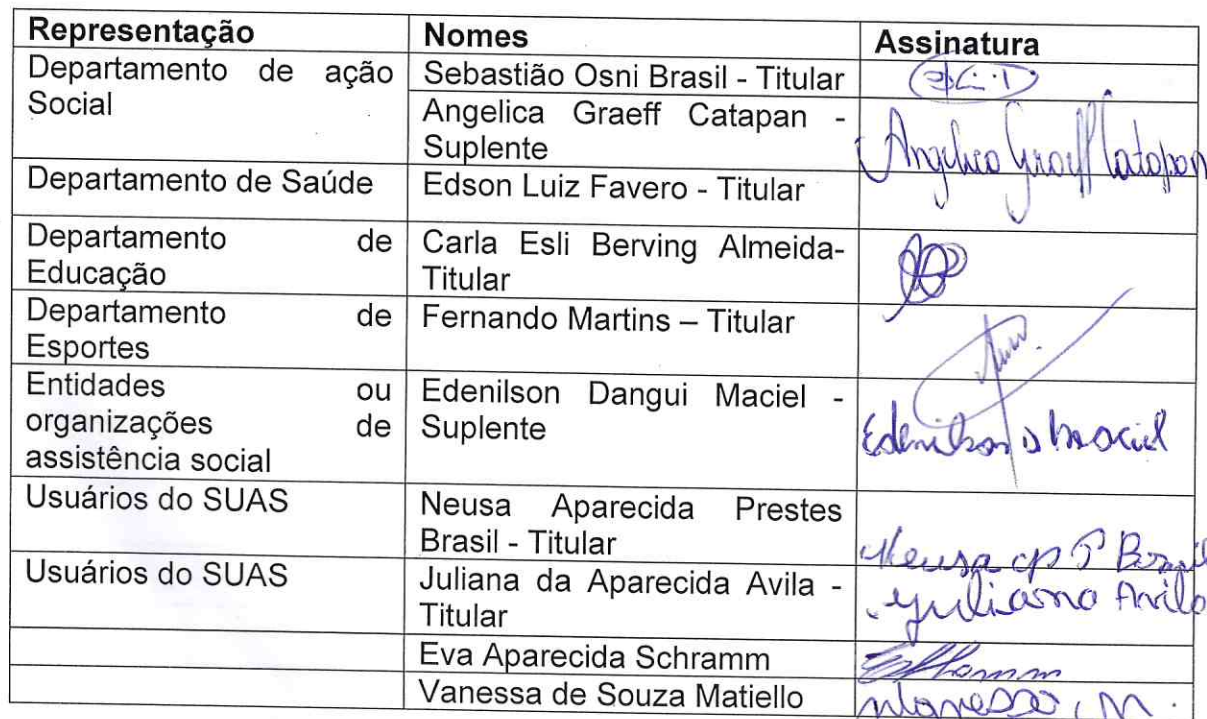 Representação Nomes Assinatura
Departamento de ação Social
Sebastião Osni Brasil - Titular
Angelica Graeff Catapan - Suplente Angelica Graeff Catapan
Departamento de Saúde Edson Luiz Favero - Titular
Departamento de Educação
Carla Esli Berving Almeida-
Titular
Departamento de Esportes
Fernando Martins – Titular
Entidades ou
organizações de
assistência social
Edenilson Dangui Maciel -
Suplente
Edenilson D Maciel
Usuários do SUAS
Neusa Aparecida Prestes
Brasil - Titular
Neusa ap P Brasil
Usuários do SUAS
Juliana da Aparecida Avila -
Titular
Juliana Avila
Eva Aparecida Schramm
Vanessa de Souza Matiello
Vanessa, M.